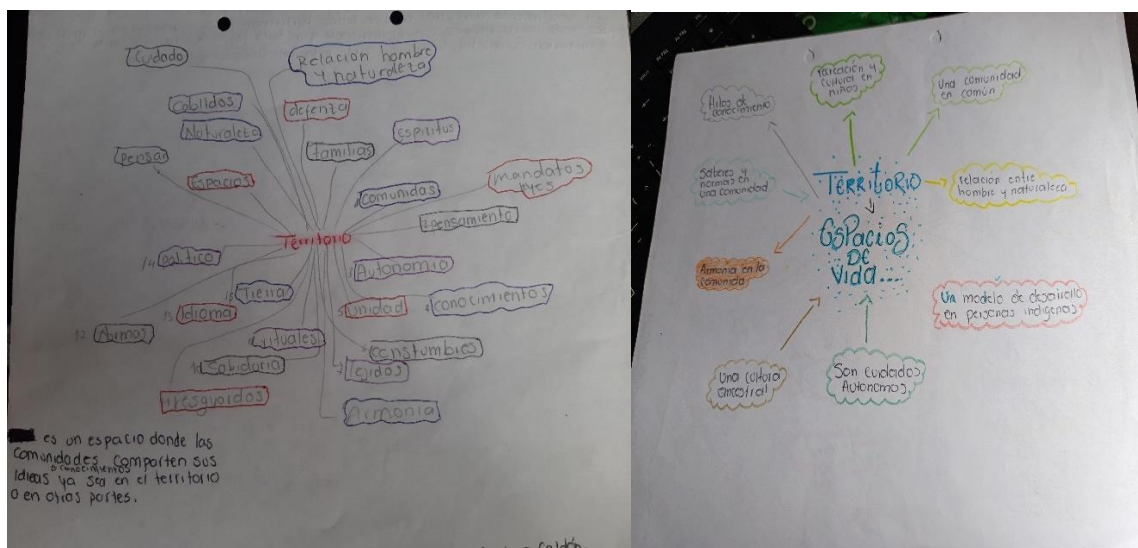 Cuidado
Relacion hombre
y naturaleza
Cabildos
defenza
Naturaleza
Espiritus
familias
Pensar
Espacios
mandatos
leyes
comunidas
2 pensamiento
Territorio
14 politico
1 Autonomia
15 Tieira
13 Idioma
5 Unidad
4 conocimientos
12 Normas
9 rituales
constumbres
10 Sabiduria
7 tejidos
11 resguardos
Armonia
es un espacio donde las
comunidades comparten sus
o conocimientos
Ideas ya sea en el territorio
o en otros partes.
Hilos de
conocimiento
cultura en
niños
Una comunidad
en común
Saberes y
normas en
una comunidad
TERRITORIO
relacion entre
hombre y naturaleza
ESPacios
DE
Vida...
Armonia en la
comunidad
Un modelo de desarrollo
en personas indigenas
Una cultura
ancestral
Son cuidados
Autonomos